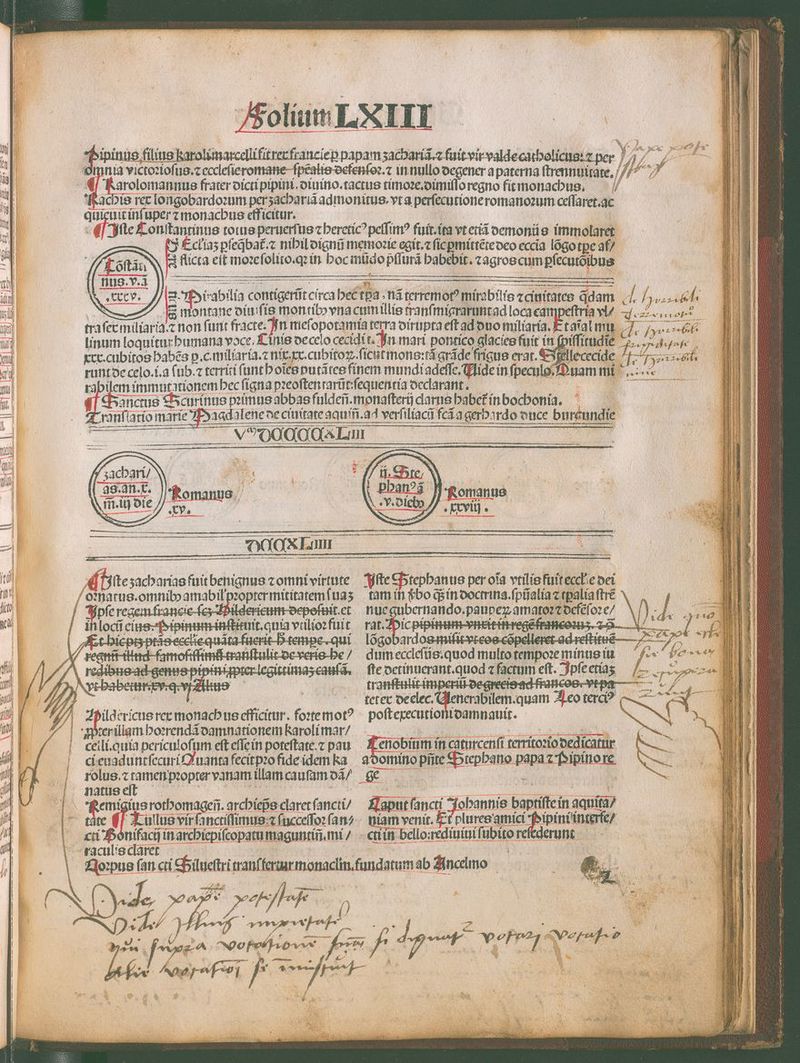 Folium LXIII
Pipinus filius karoli marcelli fit rex francie ꝑ papam zachariā. ⁊ fuit vir valde catholicus: ⁊ per
omnia victoriosus. ⁊ ecclesie romane spēalis defensor. ⁊ in nullo degener a paterna strennuitate.
¶ Karolomannus frater dicti pipini. diuino. tactus timore. dimisso regno fit monachus.
Rachis rex longobardorum per zachariā admonitus. vt a persecutione romanorum cessaret. ac
quieuit insuper ⁊ monachus efficitur.
¶ Iste Constantinus totus peruersus ⁊ heretic⁹ pessim⁹ fuit. ita vt etiā demoniis immolaret
Eccl̄iaꝫ ꝑseq̄bat̄. ⁊ nihil dignū memorie egit. ⁊ sic ꝑmittēte deo eccīa lōgo tꝑe af/
flicta est more solito. qꝛ in hoc mūdo p̄ssurā habebit. ⁊ agros cum ꝑsecutōibus
Cōstāti
nus. v. ā
. xxxv.
Mirabilia contigerūt circa hec tꝑa. nā terremot⁹ mirabilis ⁊ ciuitates q̄dam
montane diuersis montibꝰ vna cum illis transmigrarunt ad loca campestria vl/
tra sex miliaria. ⁊ non sunt fracte. In mesopotamia terra dirupta est ad duo miliaria. Et aīal mu
linum loquitur humana voce. Cinis de celo cecidit. In mari pontico glacies fuit in spissitudīe
xxx. cubitos habēs ꝑ. c. miliaria. ⁊ nix. xx. cubitoꝝ. sicut mons: tā grāde frigus erat. Stelle cecide
runt de celo. ita sub. ⁊ territi sunt hoīes putātes finem mundi adesse. Vide in speculo. Quam mi
rabilem immutationem hec signa preostentarūt: sequentia declarant.
¶ Sanctus Scurinus primus abbas fulden̄. monasterij clarus habet̄ in bochonia.
Translatio marie Magdalene de ciuitate aquin̄. ad versiliacū fcā a gerhardo duce burgundie
zachari/
as. an. x.
m. iij die
Romanus
. xv.
ij. Ste/
phan⁹ ā
. v. diebꝰ
Romanus
. xxviij.
¶ Iste zacharias fuit benignus ⁊ omni virtute
ornatus. omnibꝰ amabil̓ propter mititatem suaꝫ
Ipse regem francie scꝫ Hildericum deposuit. et
in locū eius. Pipinum instituit. quia vtilior fuit
Et hic ptꝫ ptās ecclie quāta fuerit hͦ tempe. qui
regnū illud famosissimū transtulit de veris he/
redibus ad genus pipini. ꝓpter legittimaꝫ causā.
vt habetur. xv. q. vj Alius
Hildericus rex monachus efficitur. forte mot⁹
ꝓpter illam horrendā damnationem karoli mar/
celli. quia periculosum est esse in potestate. ⁊ pau
ci euadunt securi Quanta fecit pro fide idem ka
rolus. ⁊ tamen propter vanam illam causam dā/
natus est
Remigius rothomagen̄. archiep̄s claret sancti/
tate ¶ Lullus vir sanctissimus: ⁊ successor san/
cti Bonifacij in archiepiscopatu maguntin̄. mi/
raculis claret
Corpus sancti Siluestri transfertur monaclin. fundatum ab Ancelmo
Iste Stephanus per oīa vtilis fuit ecclīe dei
tam in ꝟbo q̄ꝫ in doctrina. spūalia ⁊ tꝑalia strē
nue gubernando. pauperꝝ amator ⁊ defēsor e/
rat. Hic pipinum vnxit in regē francoruꝫ. ⁊ ꝯ
lōgobardos misit vt eos cōpelleret ad restituē
dum ecclesiis. quod multo tempore minus iu
ste detinuerant. quod ⁊ factum est. Ipse etiaꝫ
transtulit imperiū de grecis ad francos. vt pa
tet ex de elec. Venerabilem. quam Leo terci⁹
post executioni damnauit.
Cenobium in caturcensi territorio dedicatur
a domino pn̄te Stephano papa ⁊ Pipino re
ge
Caput sancti Johannis baptiste in aquita/
niam venit. Et plures amici Pipini interfe/
cti in bello: rediuiui subito resederunt
Vide papē potestatē
Vide Illius impietatē